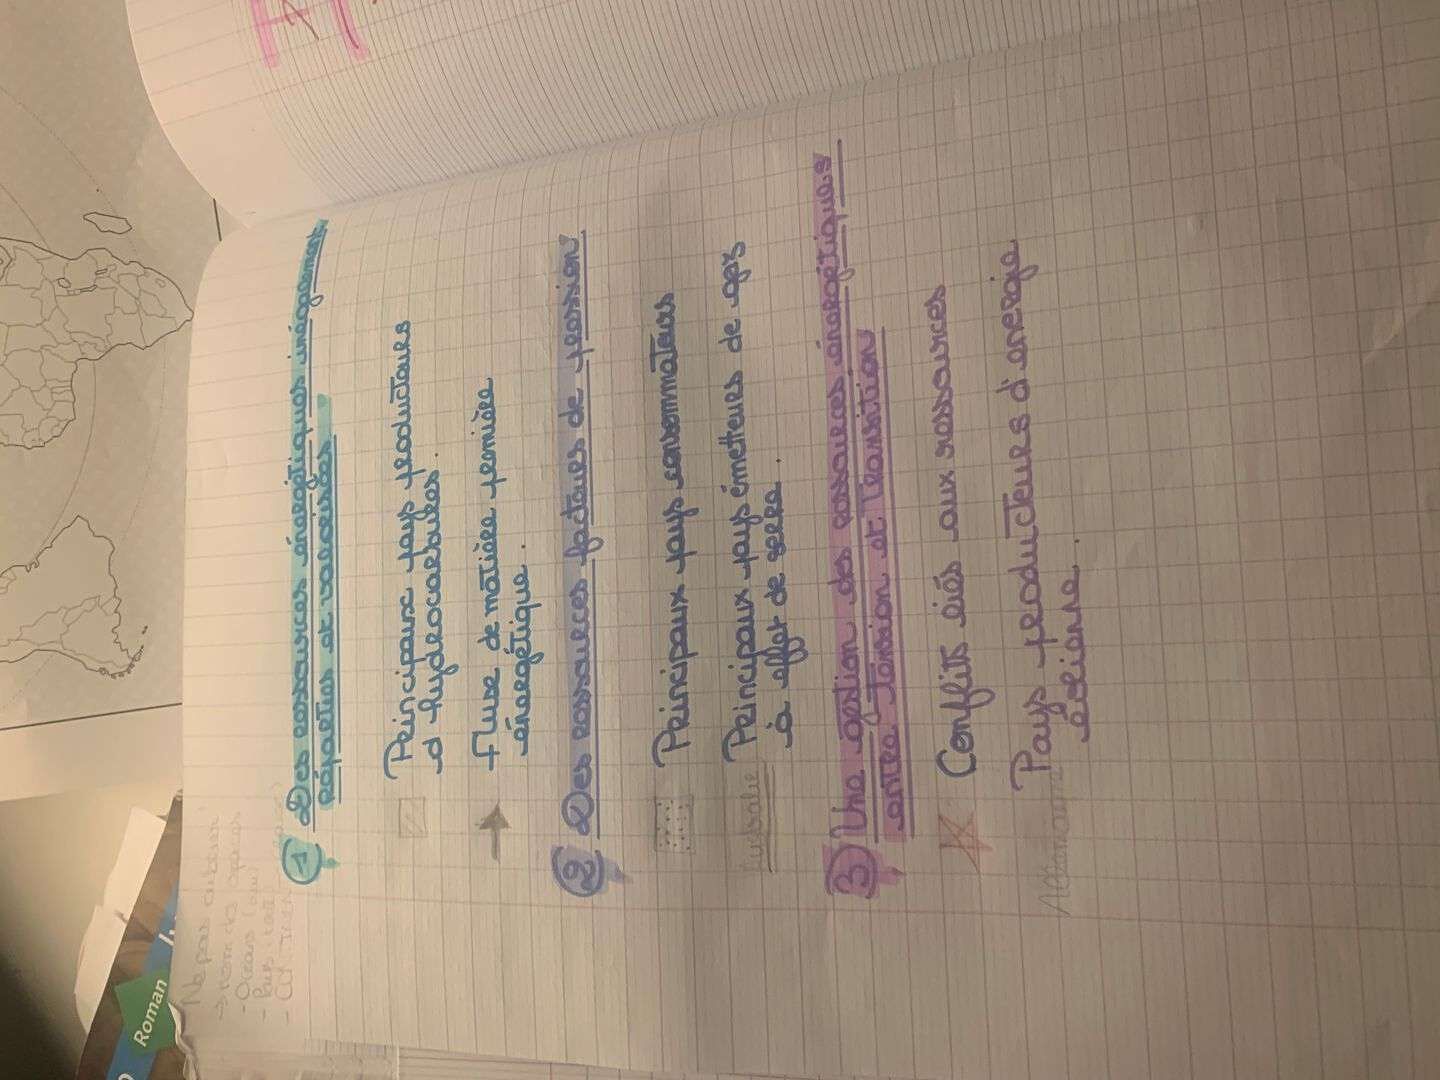 Ne pas oublier
→ nom des espaces
- Océans
- Pays
1 Des ressources énergétiques inégalement
réparties et valorisées
Principaux pays producteurs
d'hydrocarbures.
Flux de matière première
énergétique.
2 Des ressources facteurs de pression
Principaux pays consommateurs
Australie
Principaux pays émetteurs de gaz
à effet de serre.
3 Une gestion des ressources énergétiques
entre Tension et Transition
Conflits liés aux ressources
Allemagne
Pays producteurs d'énergie
éolienne.
Roman